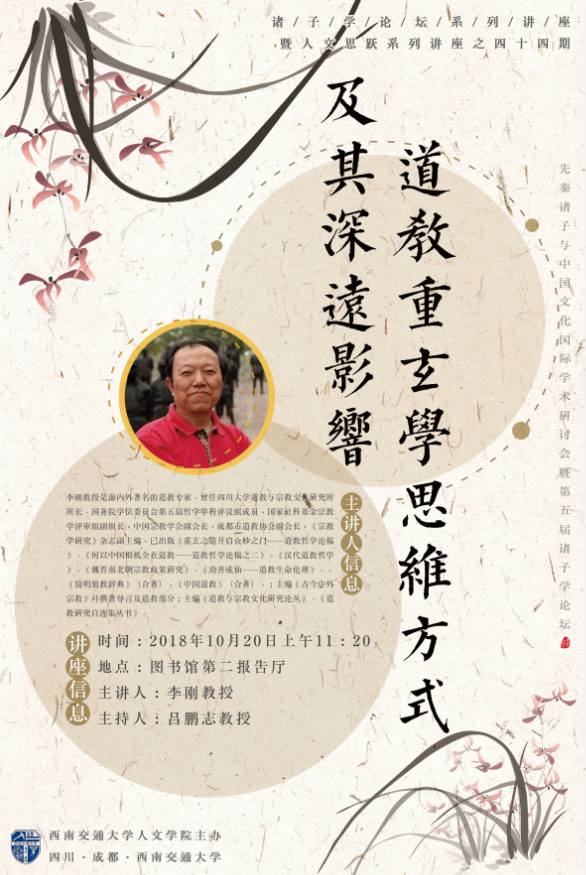 诸/子/学/论/坛/系/列/讲/座
暨人文思跃系列讲座之四十四期
道教重玄學思維方式
及其深遠影響
先秦诸子与中国文化国际学术研讨会暨第五届诸子学论坛
主讲人信息
李刚教授是海内外著名的道教专家。曾任四川大学道教与宗教文化研究所
所长、国务院学位委员会第五届哲学学科评议组成员、国家社科基金宗教
学评审组副组长、中国宗教学会副会长、成都市道教协会副会长、《宗教
学研究》杂志副主编。已出版《重玄之道开启众妙之门——道教哲学论稿
》、《何以中国根柢全在道教——道教哲学论稿之二》、《汉代道教哲学
》、《魏晋南北朝宗教政策研究》、《劝善成仙——道教生命伦理》、
《简明道教辞典》（合著）、《中国道教》（合著）、；主编《古今中外
宗教》并撰著导言及道教部分；主编《道教与宗教文化研究论丛》、《道
教研究自选集丛书》
讲座信息
时间：2018年10月20日上午11：20
地点：图书馆第二报告厅
主讲人：李刚教授
主持人：吕鹏志教授
西南交通大学人文学院主办
四川·成都·西南交通大学